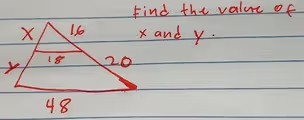 Find the value of
x and y.
x 16
18
y 20
48